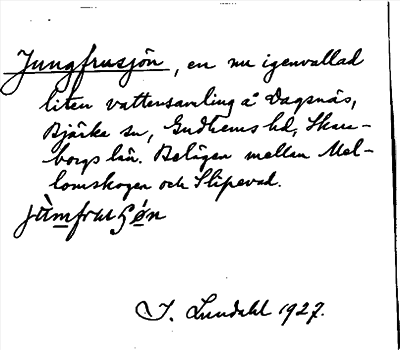 Jungfrusjön, en nu igenvallad
liten vattensamling å Dagsnäs,
Bjärka sn, Gudhems hd, Skara-
borgs län. Belägen mellan Mel-
lomskogen och Slipevad.
jùmfrusjón
J. Lundahl 1927.